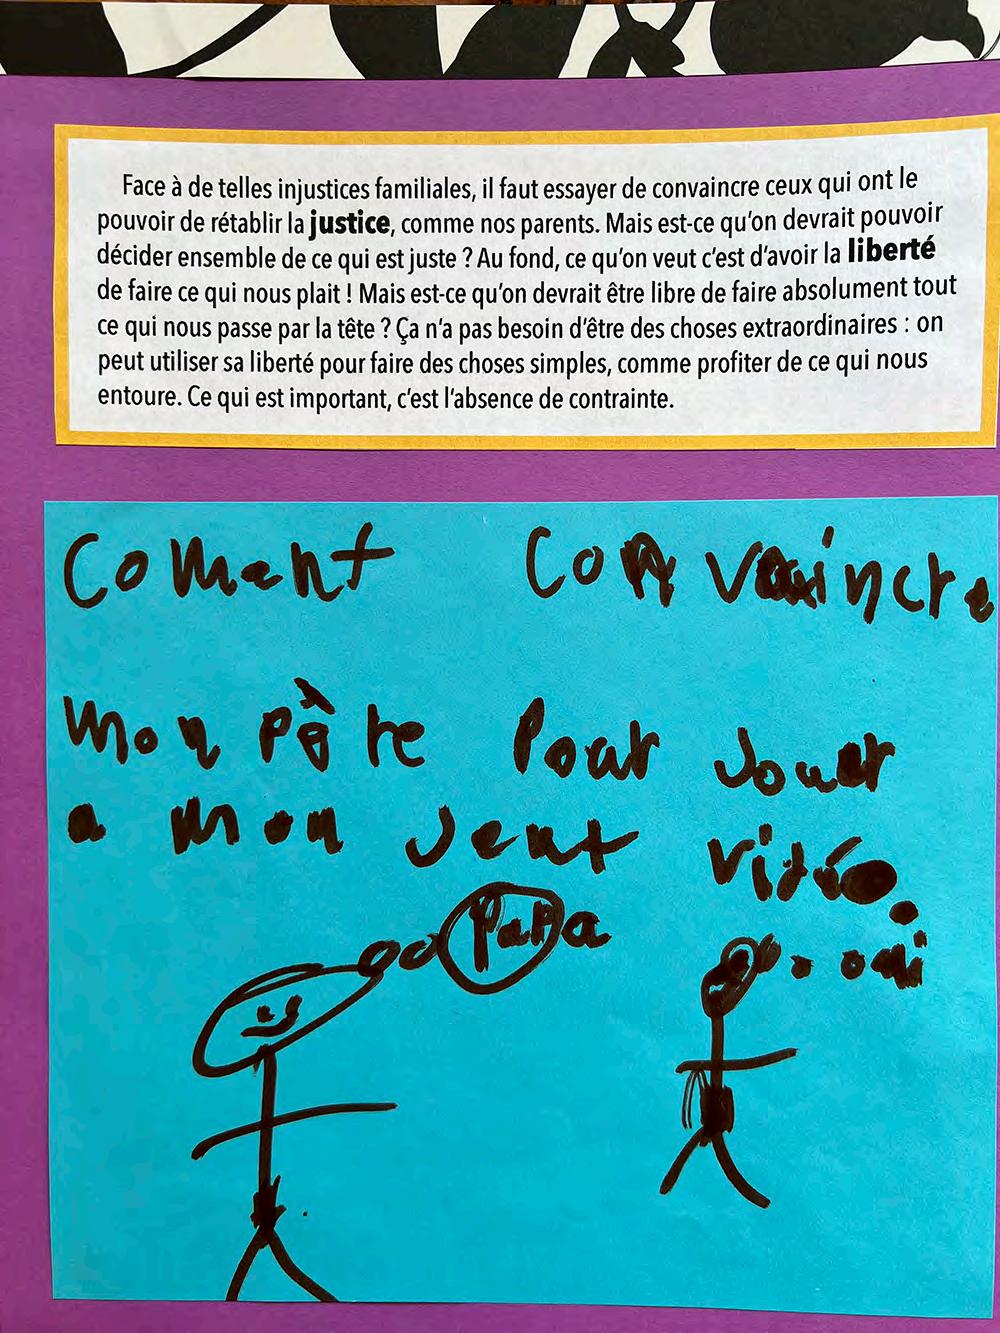 Face à de telles injustices familiales, il faut essayer de convaincre ceux qui ont le
pouvoir de rétablir la justice, comme nos parents. Mais est-ce qu'on devrait pouvoir
décider ensemble de ce qui est juste ? Au fond, ce qu'on veut c'est d'avoir la liberté
de faire ce qui nous plait ! Mais est-ce qu'on devrait être libre de faire absolument tout
ce qui nous passe par la tête ? Ça n'a pas besoin d'être des choses extraordinaires : on
peut utiliser sa liberté pour faire des choses simples, comme profiter de ce qui nous
entoure. Ce qui est important, c'est l'absence de contrainte.
Coment convaincre
mon père pour jouer
a mon jeux vidéo.
Papa
oui